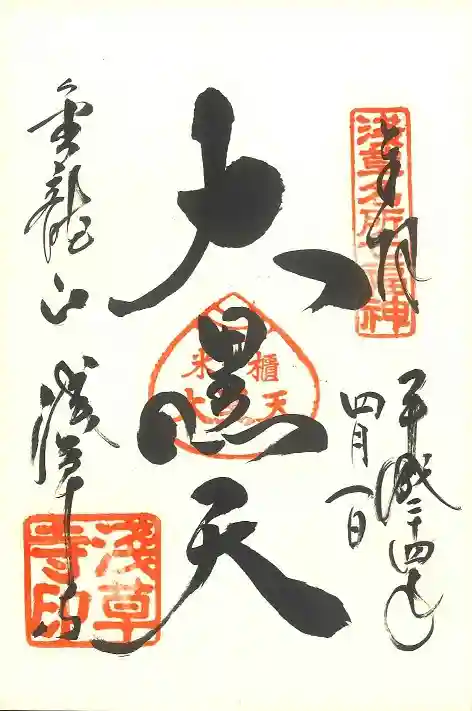 奉拝
浅草名所七福神
平成二十四年
四月一日
大黒天
米櫃
大黒天
金龍山
浅草寺
浅草
寺印